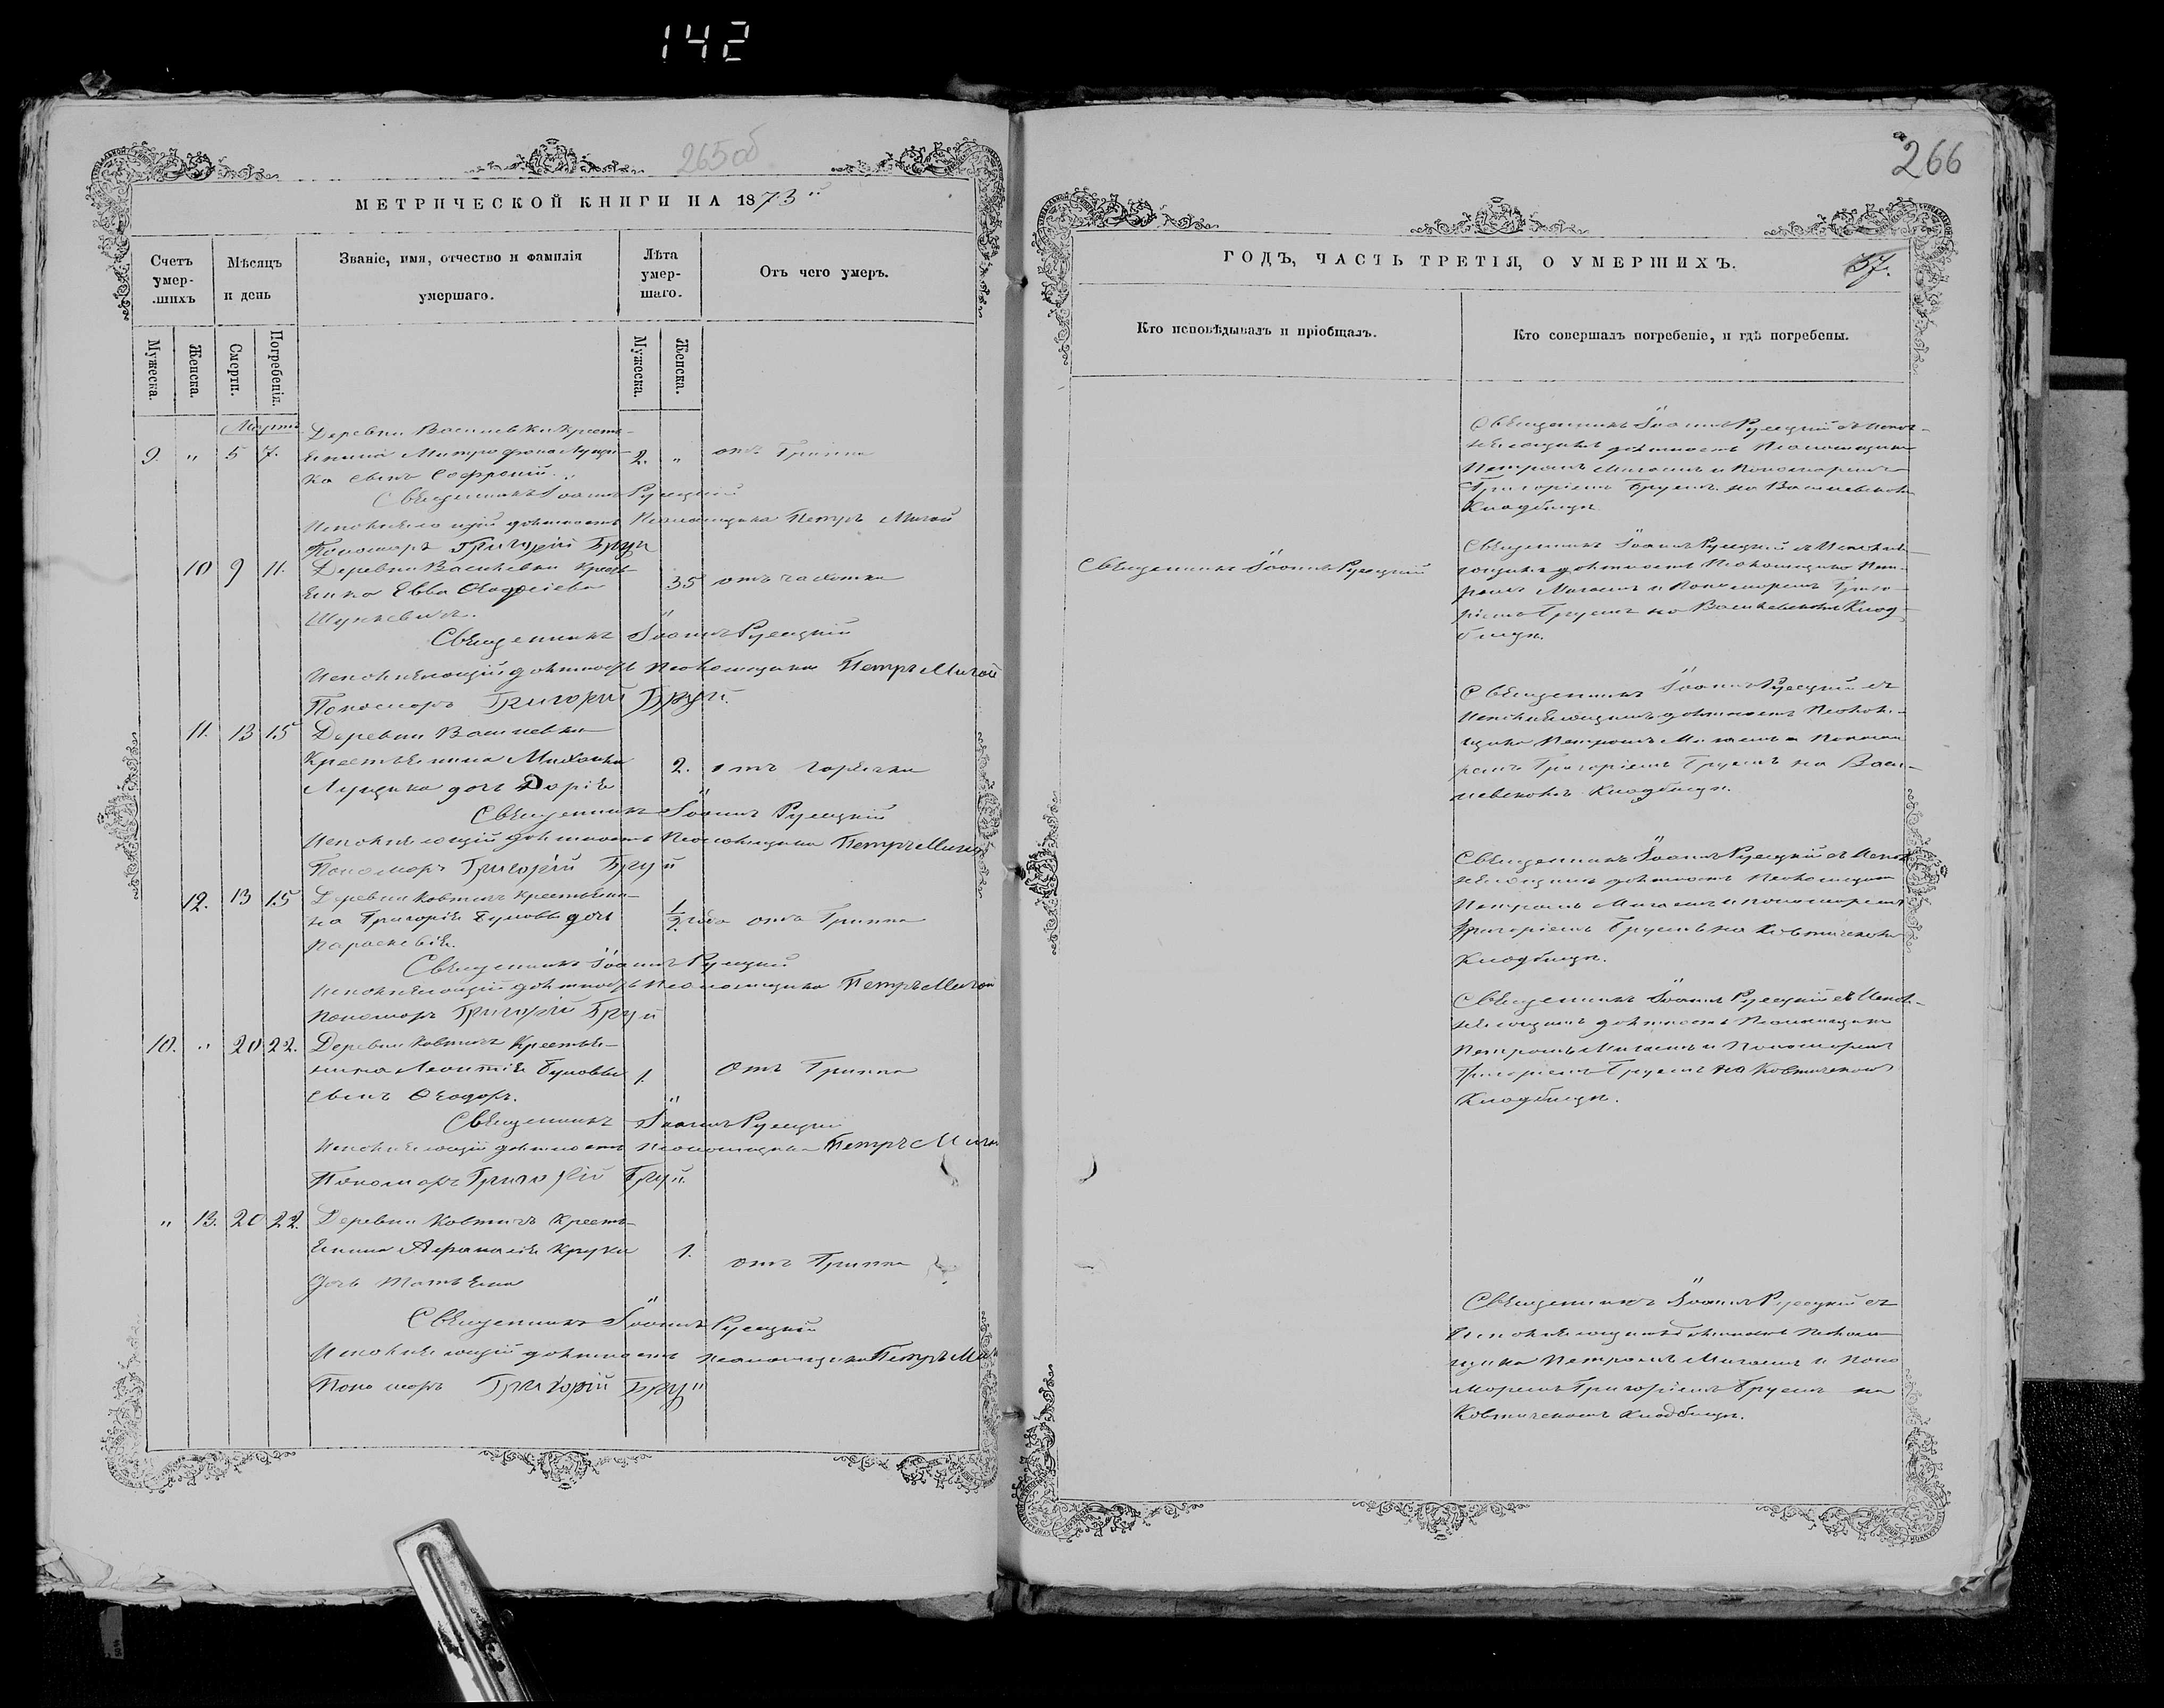 142
265об
МЕТРИЧЕСКОЙ КНИГИ НА 1873й
Счетъ умер-шихъ
Мѣсяцъ и день
Званіе, имя, отчество и фамилія умершаго.
Лѣта умер-шаго.
Отъ чего умеръ.
Мужеска.
Женска.
Смерти.
Погребенія.
Мужеска.
Женска.
Мартъ
Деревни Васильевки кресть-
9. " 5 7. янина Митрофана Лущи- 2. " отъ Гриппа
ка сынъ Софроній.
Священникъ Іоаннъ Рулецкій
Исполняющій должность Псаломщика Петръ Мигай
Пономарь Григорій Бруй
10 9 11. Деревни Васильевки кресть-
янка Евва 35 отъ чахотки
Священникъ Іоаннъ Рулецкій
Исполняющій должность Псаломщика Петръ Мигай
Пономарь Григорій Бруй.
11. 13 15 Деревни Васильевки
Крестьянина Михаила 2. отъ горячки
Лущика дочь Дарія
Священникъ Іоаннъ Рулецкій
Исполняющій должность Псаломщика Петръ Мигай
Пономарь Григорій Бруй
12. 13 15 Деревни Ковтичъ крестьяни-
на Григорія дочь 1/2 года отъ Гриппа
Параскевія.
Священникъ Іоаннъ Рулецкій
Исполняющій должность Псаломщика Петръ Мигай
Пономарь Григорій Бруй
10. " 20 22. Деревни Ковтичъ Крестья-
нина Леонтія 1. Отъ Гриппа
сынъ Ѳеодоръ.
Священникъ Іоаннъ Рулецкій
Исполняющій должность Псаломщика Петръ Мигай
Пономарь Григорій Бруй.
" 13. 20 22. Деревни Ковтичъ Кресть-
янина Афанасія Круки 1. отъ Гриппа
дочь Татьяна
Священникъ Іоаннъ Рулецкій
Исполняющій должность Псаломщика Петръ Миг
Пономарь Григорій Бруй
266
ГОДЪ, ЧАСТЬ ТРЕТІЯ, О УМЕРШИХЪ.
37.
Кто исповѣдывалъ и пріобщалъ.
Кто совершалъ погребеніе, и гдѣ погребены.
Священникъ Іоаннъ Рулецкій съ Испол-
няющимъ должность Псаломщика
Петромъ Мигаемъ и Пономаремъ
Григоріемъ Бруемъ на Васильевскомъ
Кладбищѣ.
Священникъ Іоаннъ Рулецкій
Священникъ Іоаннъ Рулецкій съ Исполня-
ющимъ должность Псаломщика Пет-
ромъ Мигаемъ и Пономаремъ Григо-
ріемъ Бруемъ на Васильевскомъ Клад-
бищѣ.
Священникъ Іоаннъ Рулецкій съ
Исполняющимъ должность Псалом-
щика Петромъ Мигаемъ и Понома-
ремъ Григоріемъ Бруемъ на Васи-
левскомъ Кладбищѣ.
Священникъ Іоаннъ Рулецкій съ Испол
няющимъ должность Псаломщика
Петромъ Мигаемъ и пономаремъ
Григоріемъ Бруемъ на Ковтичскомъ
Кладбищѣ.
Священникъ Іоаннъ Рулецкій съ Испол-
няющимъ должность Псаломщика
Петромъ Мигаемъ и Пономаремъ
Григоріемъ Бруемъ на Ковтичскомъ
Кладбищѣ.
Священникъ Іоаннъ Рулецкій съ
Исполняющимъ должность Псалом
щика Петромъ Мигаемъ и Поно
маремъ Григоріемъ Бруемъ на
Ковтичскомъ кладбищѣ.